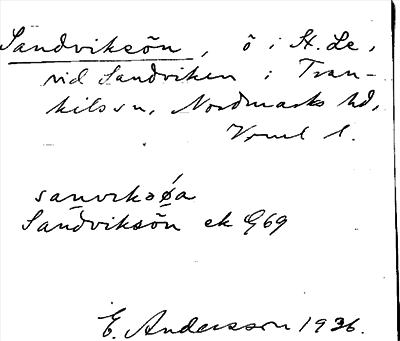 Sandviksön, ö i St. Le,
vid Sandviken i Tran-
kils sn, Nordmarks hd,
Vrml l.
sanviksøa
Sandviksön ek G69
E. Andersson 1936.